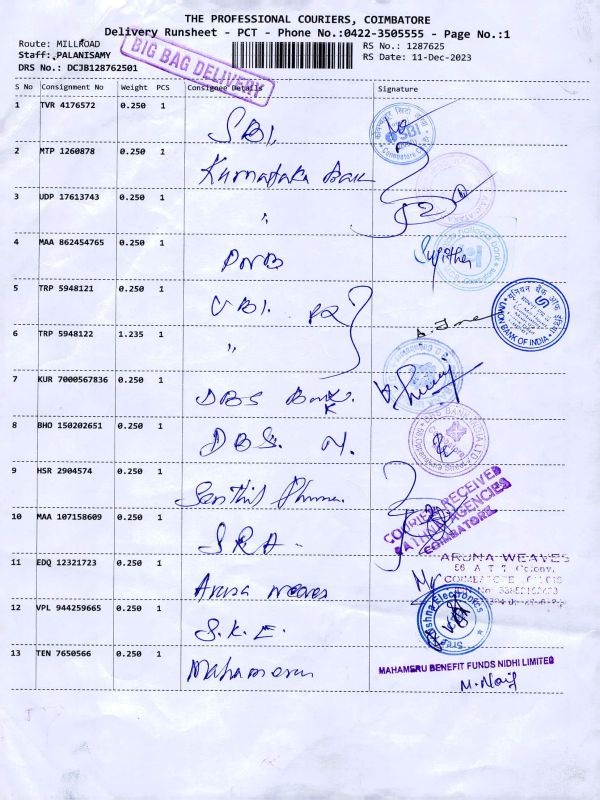 THE PROFESSIONAL COURIERS, COIMBATORE
Delivery Runsheet - PCT - Phone No.:0422-3505555 - Page No.:1
Route: MILLROAD
RS No.: 1287625
Staff: PALANISAMY
RS Date: 11-Dec-2023
DRS No.: DCJB128762501
BIG BAG DELIVERY
S No Consignment No Weight PCS Consignee Details Signature
1 TVR 4176572 0.250 1 SBI,
SBI
2 MTP 1260878 0.250 1 Karnataka Bank
3 UDP 17613743 0.250 1 "
4 MAA 862454765 0.250 1 PNB
5 TRP 5948121 0.250 1 UBI.
यूनियन बैंक ऑफ इंडिया
UNION BANK OF INDIA
6 TRP 5948122 1.235 1 "
7 KUR 7000567836 0.250 1 DBS Bank.
8 BHO 150202651 0.250 1 DBS. N.
9 HSR 2904574 0.250 1 Senthil Pharma
COURIER RECEIVED
RATHNA AGENCIES
COIMBATORE
10 MAA 107158609 0.250 1 SRA
11 EDQ 12321723 0.250 1 Aruna weaves
ARUNA WEAVES
56 A T T Colony,
12 VPL 944259665 0.250 1 S.K.E.
Sree Krishna Electronics
13 TEN 7650566 0.250 1 Mahameru
MAHAMERU BENEFIT FUNDS NIDHI LIMITED